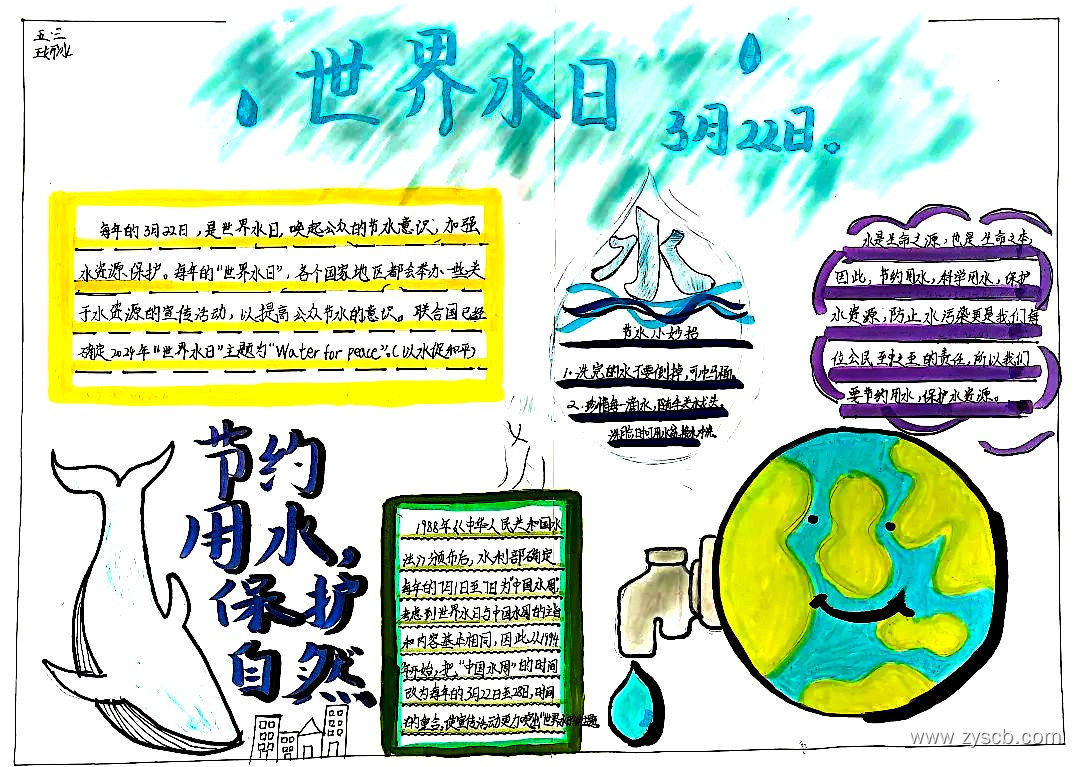 五.三
世界水日
3月22日。
每年的3月22日，是世界水日，唤起公众的节水意识，加强
水资源保护。每年的“世界水日”，各个国家地区都会举办一些关
于水资源的宣传活动，以提高公众节水的意识。联合国已经
确定2024年“世界水日”主题为“Water for peace”。（以水促和平）
水
节水小妙招
1.洗完的水不要倒掉，可冲马桶。
2.珍惜每一滴水，随手关水龙头。
水是生命之源，也是生命之本，
因此，节约用水，科学用水，保护
水资源，防止水污染更是我们每
位公民至之至的责任，所以我们
要节约用水，保护水资源。
节约
用水，
保护
自然
1988年《中华人民共和国水
法》颁布后，水利部确定
每年的7月1日至7日为“中国水周”
考虑到世界水日与中国水周的主旨
和内容基本相同，因此从1994
年开始，把“中国水周”的时间
改为每年的3月22日至28日，时间
的重合，使宣传活动更加突出“世界水日”的主题
www.zyscb.com